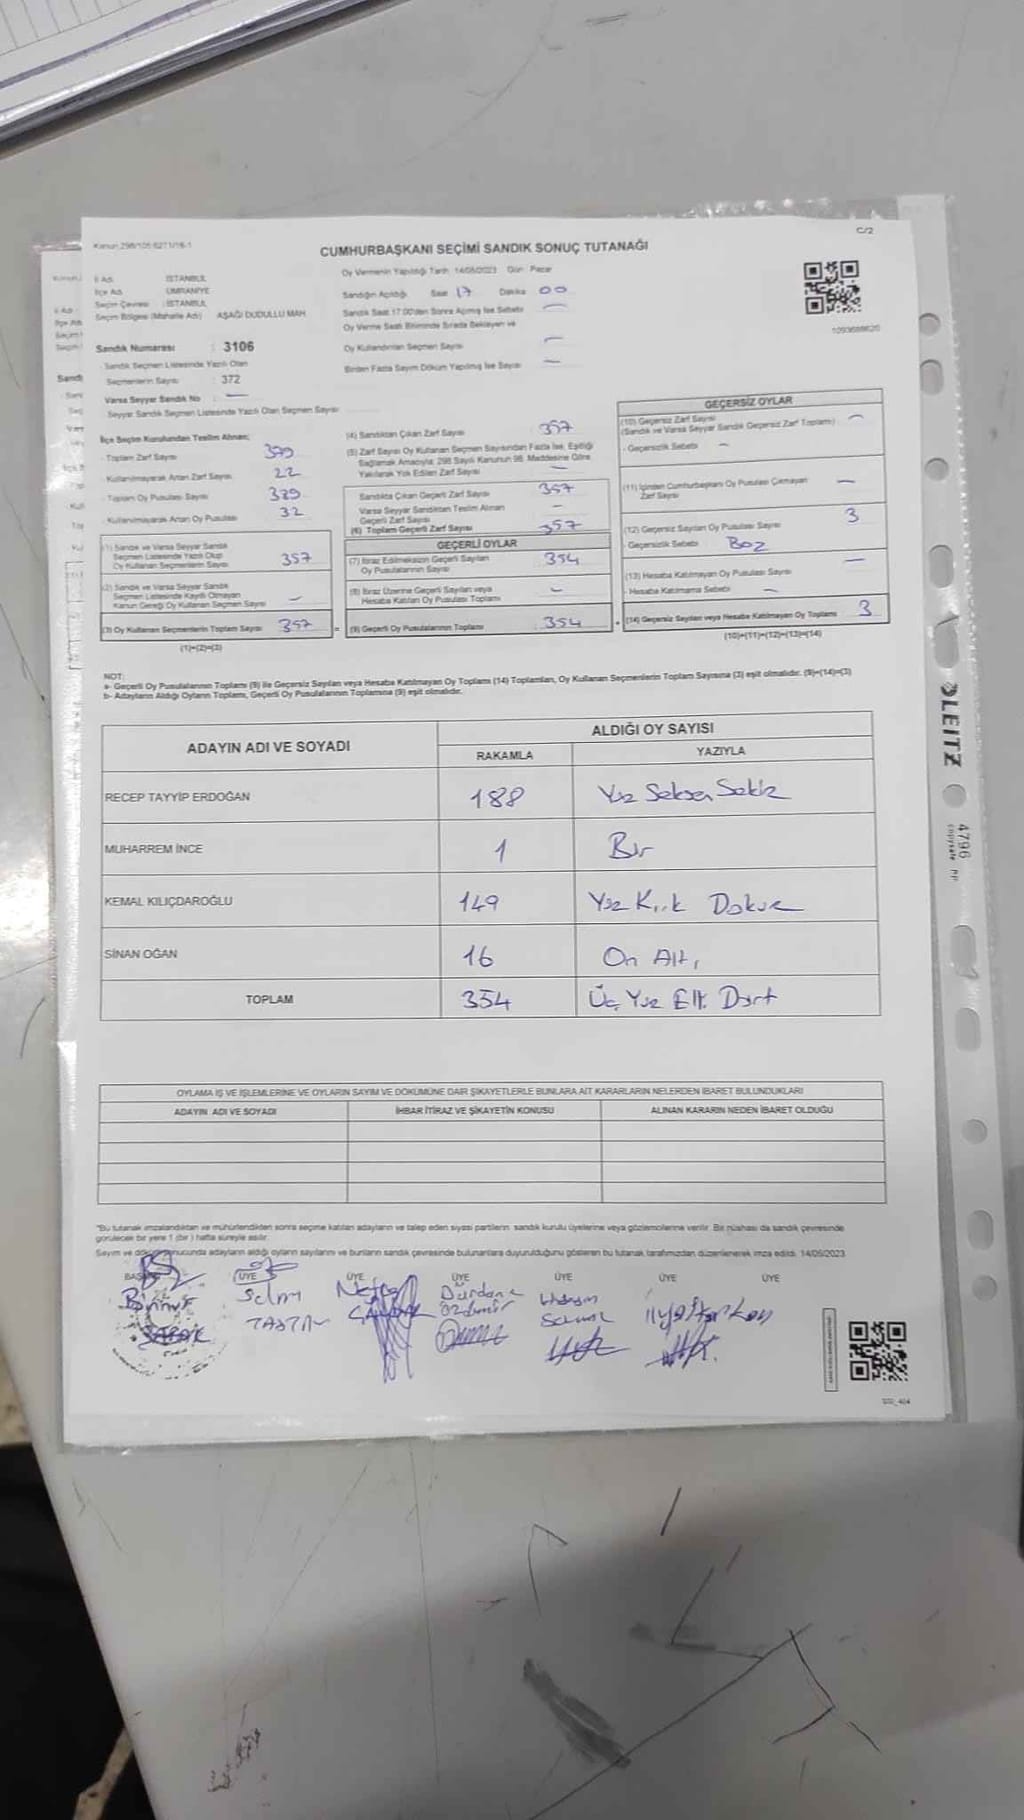 Kanun 298/105 6271/16-1
C/2
CUMHURBAŞKANI SEÇİMİ SANDIK SONUÇ TUTANAĞI
İl Adı : İSTANBUL
İlçe Adı : ÜMRANİYE
Seçim Çevresi : İSTANBUL
Seçim Bölgesi (Mahalle Adı) AŞAĞI DUDULLU MAH.
Sandık Numarası : 3106
Sandık Seçmen Listesinde Yazılı Olan
Seçmenlerin Sayısı : 372
Varsa Seyyar Sandık No : —
Seyyar Sandık Seçmen Listesinde Yazılı Olan Seçmen Sayısı
Oy Vermenin Yapıldığı Tarih 14/05/2023 Gün Pazar
Sandığın Açıldığı Saat 17 Dakika 00
Sandık Saat 17:00'den Sonra Açılmış İse Sebebi —
Oy Verme Saati Bitiminde Sırada Bekleyen ve
Oy Kullandırılan Seçmen Sayısı —
Birden Fazla Sayım Döküm Yapılmış İse Sayısı —
İlçe Seçim Kurulundan Teslim Alınan;
- Toplam Zarf Sayısı 379
- Kullanılmayarak Artan Zarf Sayısı 22
- Toplam Oy Pusulası Sayısı 389
- Kullanılmayarak Artan Oy Pusulası 32
(1) Sandık ve Varsa Seyyar Sandık
Seçmen Listesinde Yazılı Olup
Oy Kullanan Seçmenlerin Sayısı 357
(2) Sandık ve Varsa Seyyar Sandık
Seçmen Listesinde Kayıtlı Olmayan
Kanun Gereği Oy Kullanan Seçmen Sayısı —
(3) Oy Kullanan Seçmenlerin Toplam Sayısı 357 =
(1)+(2)=(3)
(4) Sandıktan Çıkan Zarf Sayısı 357
(5) Zarf Sayısı Oy Kullanan Seçmen Sayısından Fazla İse, Eşitliği
Sağlamak Amacıyla; 298 Sayılı Kanunun 98. Maddesine Göre
Yakılarak Yok Edilen Zarf Sayısı —
Sandıkta Çıkan Geçerli Zarf Sayısı 357
Varsa Seyyar Sandıktan Teslim Alınan
Geçerli Zarf Sayısı —
(6) Toplam Geçerli Zarf Sayısı 357
GEÇERLİ OYLAR
(7) İtiraz Edilmeksizin Geçerli Sayılan
Oy Pusulalarının Sayısı 354
(8) İtiraz Üzerine Geçerli Sayılan veya
Hesaba Katılan Oy Pusulası Toplamı —
(9) Geçerli Oy Pusulalarının Toplamı 354 +
GEÇERSİZ OYLAR
(10) Geçersiz Zarf Sayısı
(Sandık ve Varsa Seyyar Sandık Geçersiz Zarf Toplamı) —
- Geçersizlik Sebebi —
(11) İçinden Cumhurbaşkanı Oy Pusulası Çıkmayan
Zarf Sayısı —
(12) Geçersiz Sayılan Oy Pusulası Sayısı 3
- Geçersizlik Sebebi Boz
(13) Hesaba Katılmayan Oy Pusulası Sayısı —
- Hesaba Katılmama Sebebi —
(14) Geçersiz Sayılan veya Hesaba Katılmayan Oy Toplamı 3
(10)+(11)+(12)+(13)=(14)
NOT:
a- Geçerli Oy Pusulalarının Toplamı (9) ile Geçersiz Sayılan veya Hesaba Katılmayan Oy Toplamı (14) Toplamları, Oy Kullanan Seçmenlerin Toplam Sayısına (3) eşit olmalıdır. (9)+(14)=(3)
b- Adayların Aldığı Oyların Toplamı, Geçerli Oy Pusulalarının Toplamına (9) eşit olmalıdır.
ADAYIN ADI VE SOYADI
ALDIĞI OY SAYISI
RAKAMLA YAZIYLA
RECEP TAYYİP ERDOĞAN 188 Yüz Seksen Sekiz
MUHARREM İNCE 1 Bir
KEMAL KILIÇDAROĞLU 149 Yüz Kırk Dokuz
SİNAN OĞAN 16 On Altı
TOPLAM 354 Üç Yüz Elli Dört
OYLAMA İŞ VE İŞLEMLERİNE VE OYLARIN SAYIM VE DÖKÜMÜNE DAİR ŞİKAYETLERLE BUNLARA AİT KARARLARIN NELERDEN İBARET BULUNDUKLARI
ADAYIN ADI VE SOYADI İHBAR İTİRAZ VE ŞİKAYETİN KONUSU ALINAN KARARIN NEDEN İBARET OLDUĞU
*Bu tutanak imzalandıktan ve mühürlendikten sonra seçime katılan adayların ve talep eden siyasi partilerin sandık kurulu üyelerine veya gözlemcilerine verilir. Bir nüshası da sandık çevresinde
görülecek bir yere 1 (bir) hafta süreyle asılır.
Sayım ve döküm sonucunda adayların aldığı oyların sayılarını ve bunların sandık çevresinde bulunanlara duyurulduğunu gösteren bu tutanak tarafımızdan düzenlenerek imza edildi. 14/05/2023
BAŞKAN ÜYE ÜYE ÜYE ÜYE ÜYE ÜYE
Dürdane
Özdemir
LEITZ
4796
copysafe